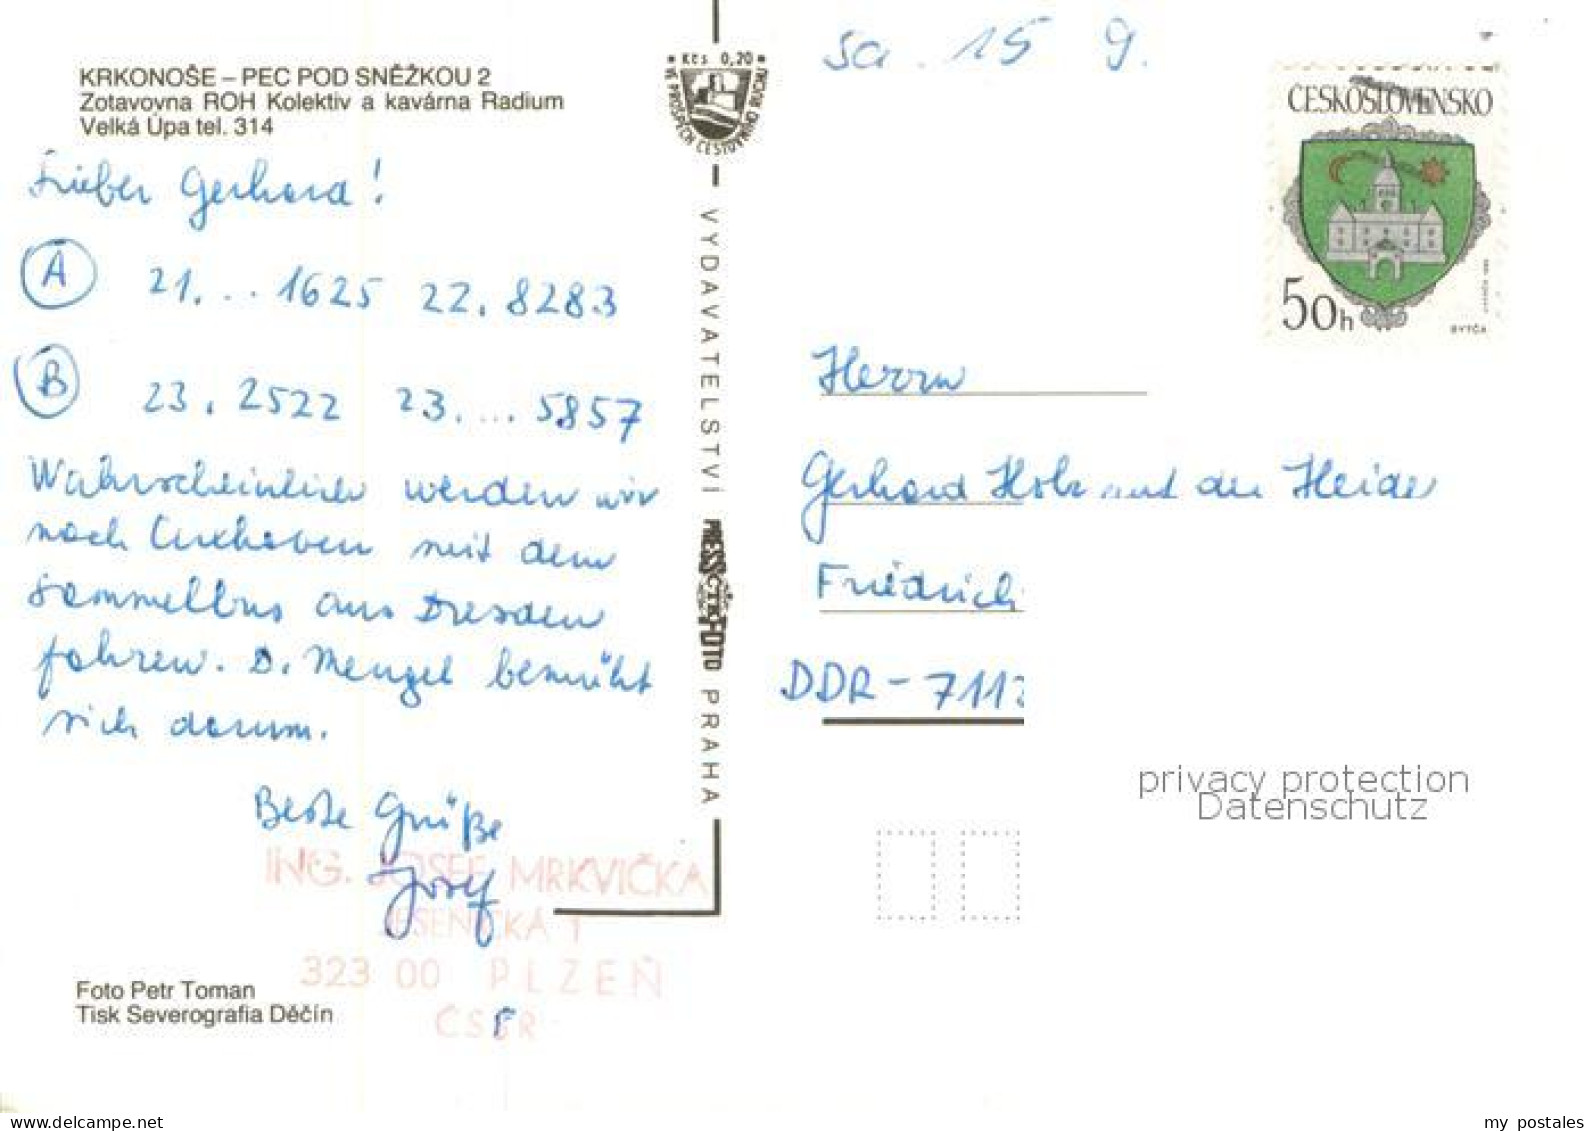 KRKONOŠE – PEC POD SNĚŽKOU 2
Zotavovna ROH Kolektiv a kavárna Radium
Velká Úpa tel. 314
Lieber Gerhard!
A 21. ... 1625 22. 8283
B 23. 2522 23. ... 5857
Wahrscheinlich werden wir
nach Cuxhaven mit dem
Sammelbus aus Dresden
fahren. D. Mengel bemüht
sich darum.
Beste Grüße
Josef
ING. JOSEF MRKVIČKA
JESENICKÁ 1
323 00 PLZEŇ
Foto Petr Toman
Tisk Severografia Děčín
Kčs 0,20
VE PROSPĚCH CESTOVNÍHO RUCHU
VYDAVATELSTVÍ PRESSFOTO PRAHA
ČTK
Sa. 15 9.
ČESKOSLOVENSKO
50h
BYTČA
Herrn
Gerhard Holz auf der Heide
Friedrich
DDR - 711
privacy protection
Datenschutz
my postales
www.delcampe.net